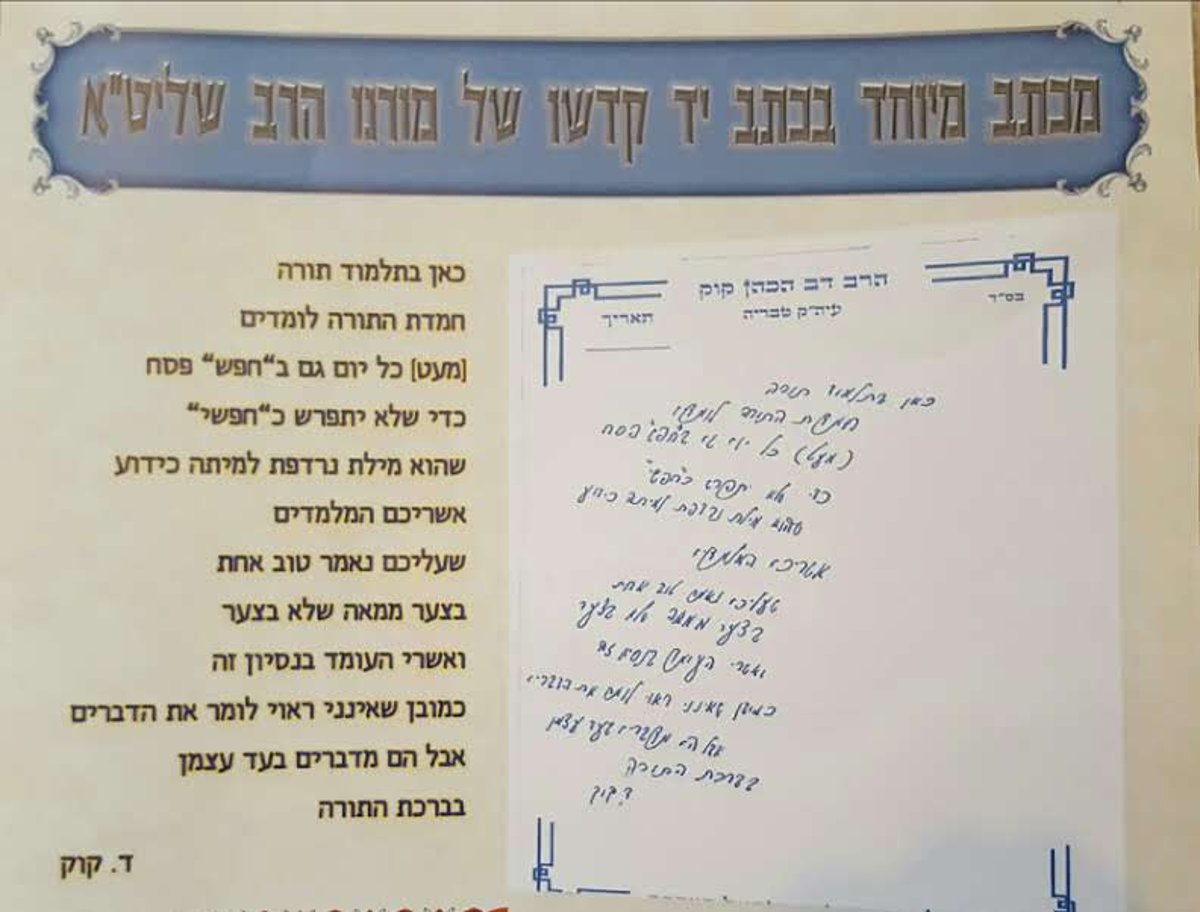 מכתב מיוחד בכתב יד קדשו של מורנו הרב שליט"א
הרב דב הכהן קוק
עיה"ק טבריה
בס"ד
תאריך
כאן בתלמוד תורה
חמדת התורה לומדים
(מעט) כל יום גם ב"חפש" פסח
כדי שלא יתפרש כ"חפשי"
שהוא מילת נרדפת למיתה כידוע
אשריכם המלמדים
שעליכם נאמר טוב אחת
בצער ממאה שלא בצער
ואשרי העומד בנסיון זה
כמובן שאינני ראוי לומר את הדברים
אבל הם מדברים בעד עצמן
בברכת התורה
ד. קוק
כאן בתלמוד תורה
חמדת התורה לומדים
[מעט] כל יום גם ב"חפש" פסח
כדי שלא יתפרש כ"חפשי"
שהוא מילת נרדפת למיתה כידוע
אשריכם המלמדים
שעליכם נאמר טוב אחת
בצער ממאה שלא בצער
ואשרי העומד בנסיון זה
כמובן שאינני ראוי לומר את הדברים
אבל הם מדברים בעד עצמן
בברכת התורה
ד. קוק